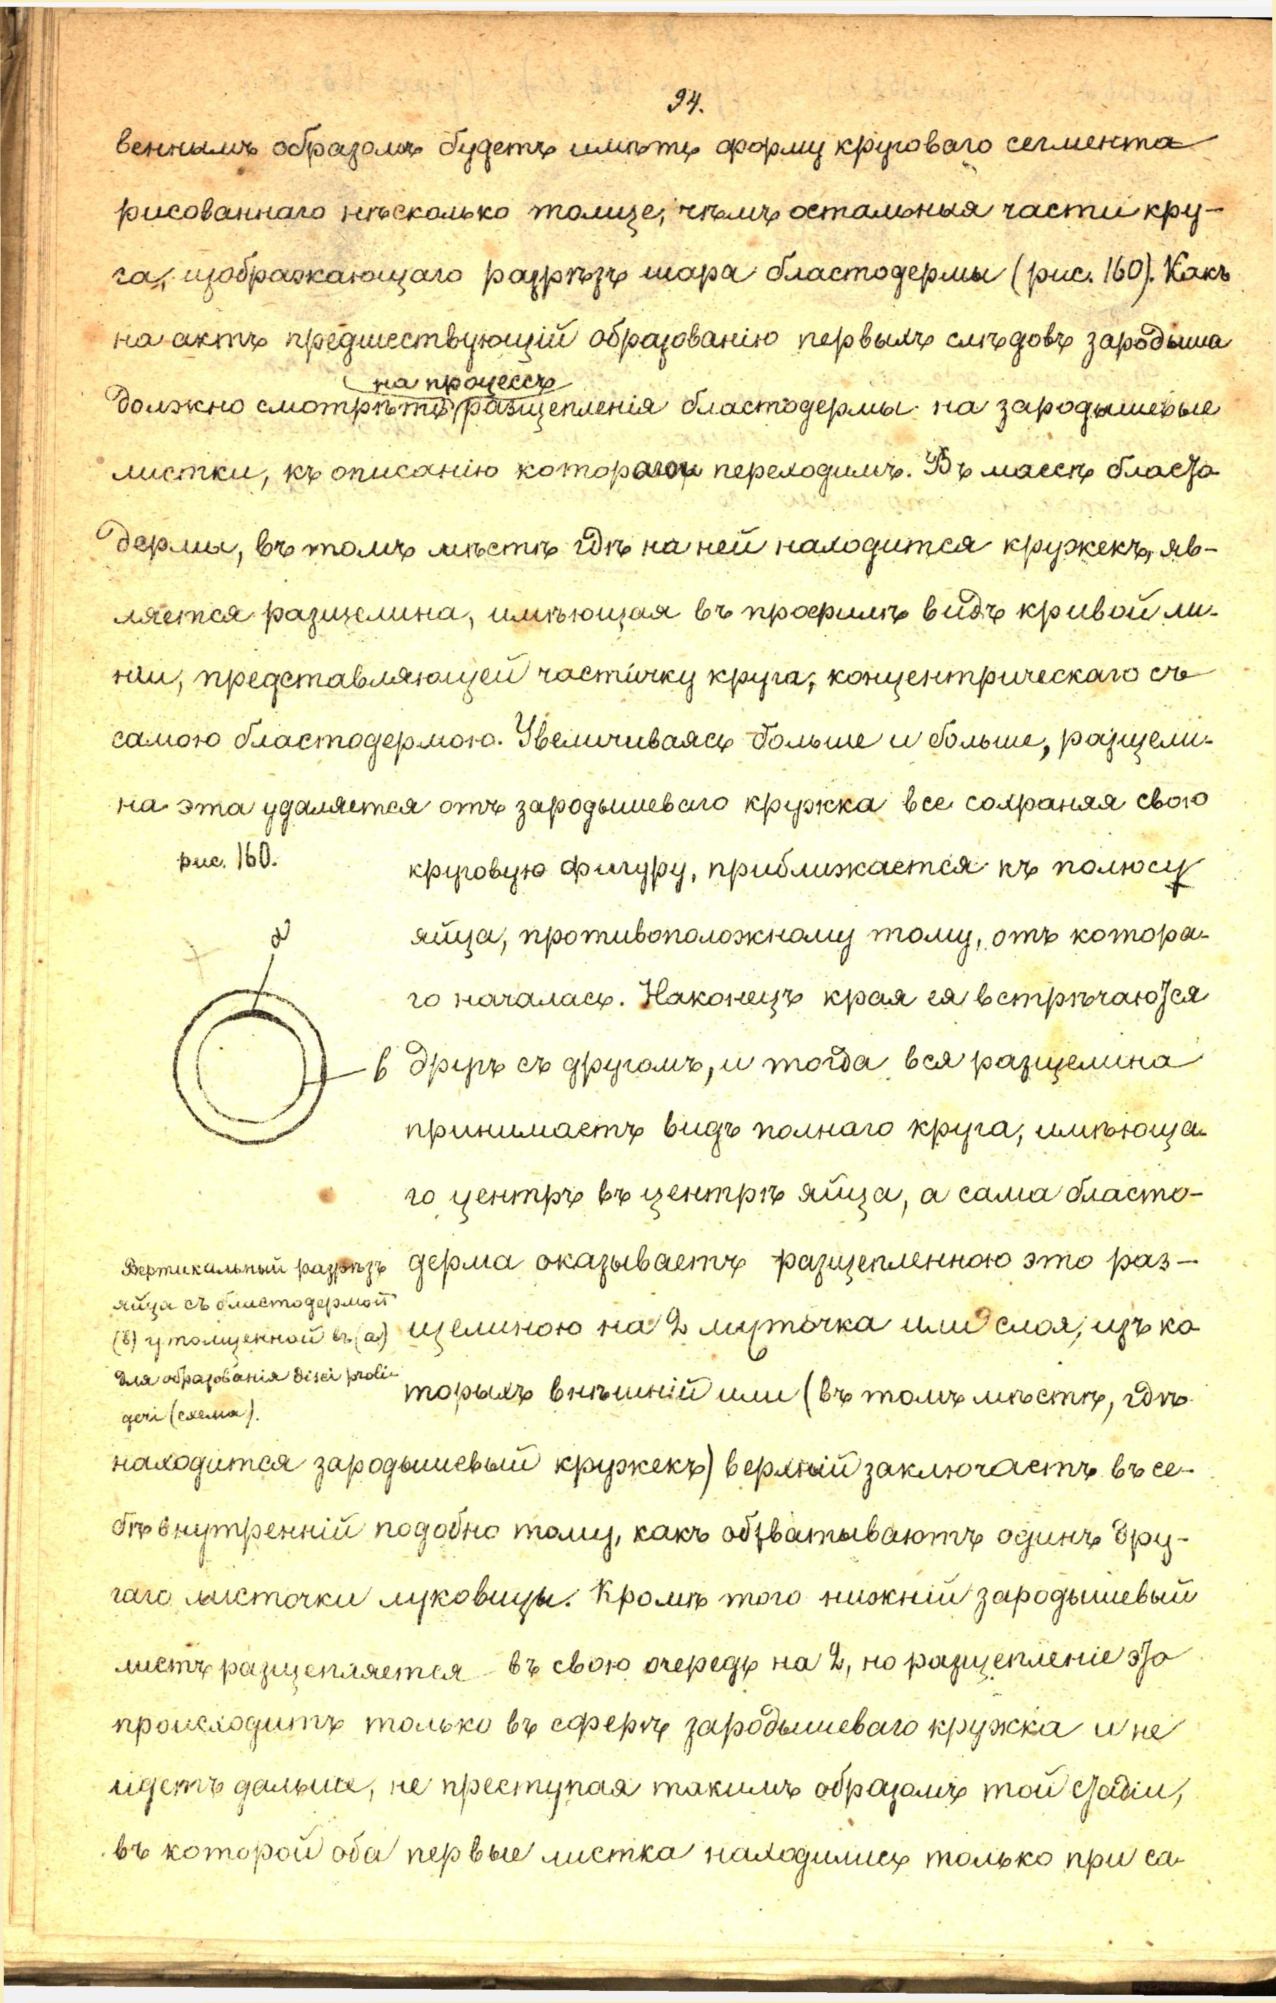 94.
веннымъ образомъ будетъ имѣть форму круговаго сегмента
рисованнаго нѣсколько толще, чѣмъ остальныя части кру-
га, изображающаго разрѣзъ шара бластодермы (рис. 160). Какъ
на актъ предшествующій образованію первыхъ слѣдовъ зародыша
на процессъ
должно смотрѣть разщепленія бластодермы на зародышевые
листки, къ описанію котораго переходимъ. Въ массѣ бласто
дермы, въ томъ мѣстѣ гдѣ на ней находится кружекъ, яв-
ляется разщелина, имѣющая въ профилѣ видъ кривой ли-
ніи, представляющей частичку круга, концентрическаго съ
самою бластодермою. Увеличиваясь больше и больше, разщели-
на эта удаляется отъ зародышеваго кружка все сохраняя свою
рис. 160.
круговую фигуру, приближается къ полюсу
яйца, противоположному тому, отъ котора-
го началась. Наконецъ края ея встрѣчаются
другъ съ другомъ, и тогда вся разщелина
принимаетъ видъ полнаго круга, имѣюща-
го центръ въ центрѣ яйца, а сама бласто-
дерма оказываетъ разщепленною это раз-
щелиною на 2 листочка или слоя, изъ ко
торыхъ внѣшній или (въ томъ мѣстѣ, гдѣ
а
в
Вертикальный разрѣзъ
яйца съ бластодермой
(в) утолщенной въ (а)
для образованія disci proli-
geri (схема).
находится зародышевый кружекъ) верхній заключаетъ въ се-
бѣ внутренній подобно тому, какъ обхватываютъ одинъ дру-
гаго листочки луковицы. Кромѣ того нижній зародышевый
листъ разщепляется въ свою очередь на 2, но разщепленіе это
происходитъ только въ сферѣ зародышеваго кружка и не
идетъ дальше, не преступая такимъ образомъ той стадіи,
въ которой оба первые листка находились только при са-